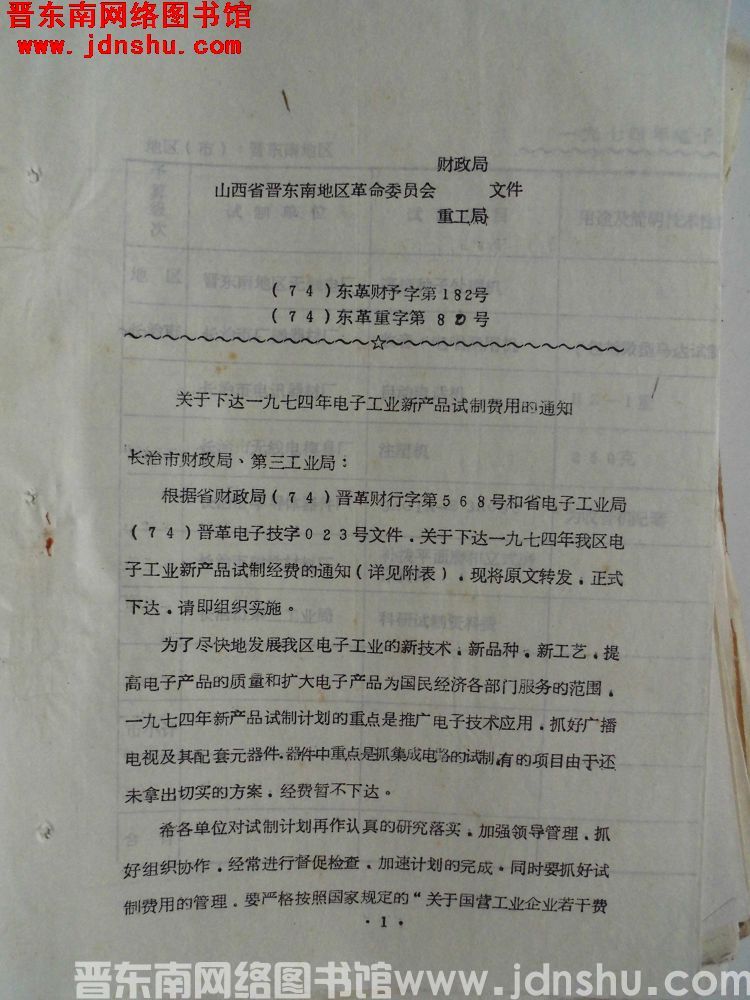 晋东南网络图书馆
www.jdnshu.com
财政局
山西省晋东南地区革命委员会 文件
重工局
(74)东革财予字第182号
(74)东革重字第80号
关于下达一九七四年电子工业新产品试制费用的通知
长治市财政局、第三工业局：
根据省财政局(74)晋革财行字第568号和省电子工业局
(74)晋革电子技字023号文件．关于下达一九七四年我区电
子工业新产品试制经费的通知(详见附表)．现将原文转发．正式
下达．请即组织实施。
为了尽快地发展我区电子工业的新技术．新品种．新工艺．提
高电子产品的质量和扩大电子产品为国民经济各部门服务的范围．
一九七四年新产品试制计划的重点是推广电子技术应用．抓好广播
电视及其配套元器件.器件中重点是抓集成电路的试制.有的项目由于还
未拿出切实的方案．经费暂不下达。
希各单位对试制计划再作认真的研究落实．加强领导管理．抓
好组织协作．经常进行督促检查．加速计划的完成．同时要抓好试
制费用的管理．要严格按照国家规定的“关于国营工业企业若干费
·1·
晋东南网络图书馆www.jdnshu.com